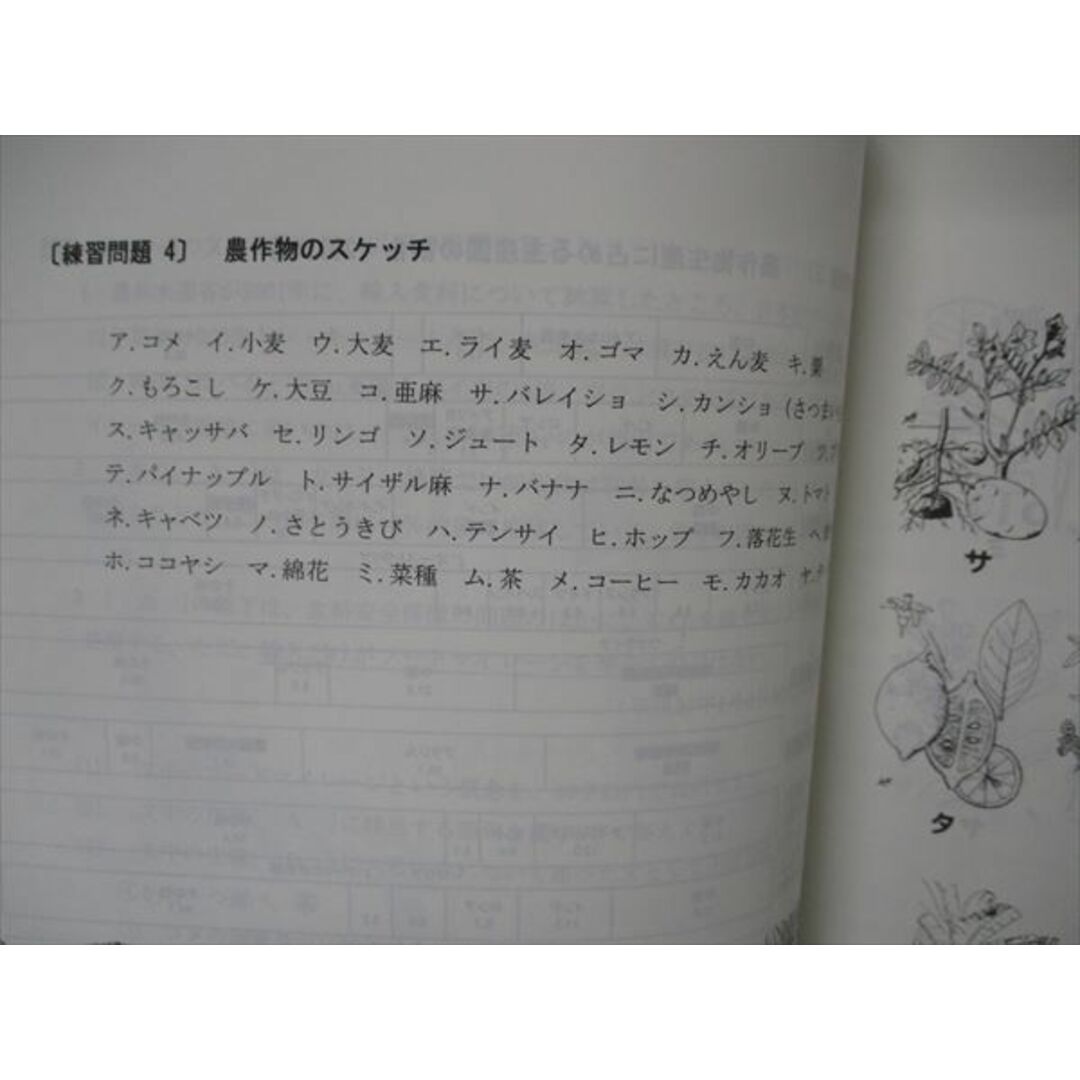 〔練習問題 4〕 農作物のスケッチ
ア.コメ イ.小麦 ウ.大麦 エ.ライ麦 オ.ゴマ カ.えん麦 キ.
ク.もろこし ケ.大豆 コ.亜麻 サ.バレイショ シ.カンショ(さつまい
ス.キャッサバ セ.リンゴ ソ.ジュート タ.レモン チ.オリーブ
テ.パイナップル ト.サイザル麻 ナ.バナナ ニ.なつめやし ヌ.トマト
ネ.キャベツ ノ.さとうきび ハ.テンサイ ヒ.ホップ フ.落花生 ヘ
ホ.ココヤシ マ.綿花 ミ.菜種 ム.茶 メ.コーヒー モ.カカオ ヤ.
サ
タ